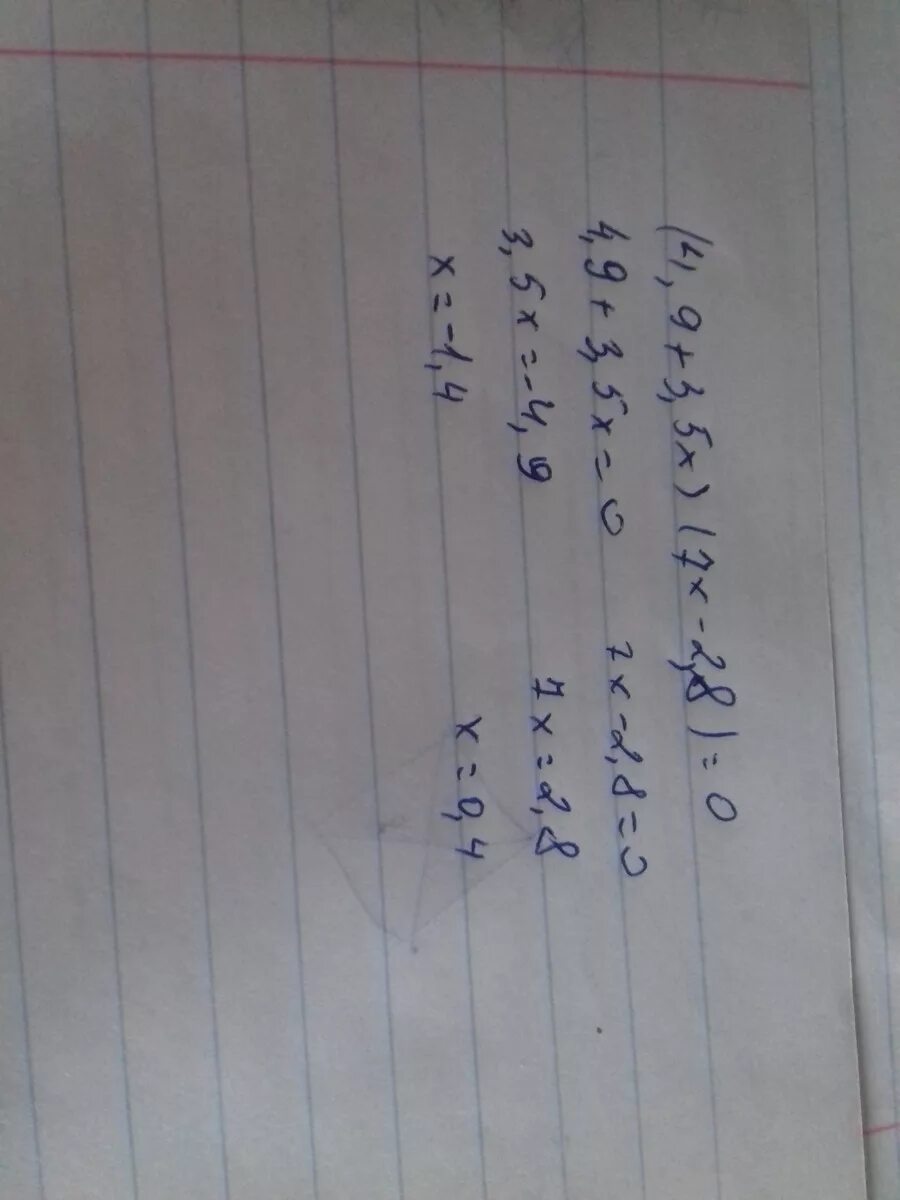 (4,9+3,5x)(7x-2,8)=0
4,9+3,5x=0 7x-2,8=0
3,5x=-4,9 7x=2,8
x=-1,4 x=0,4